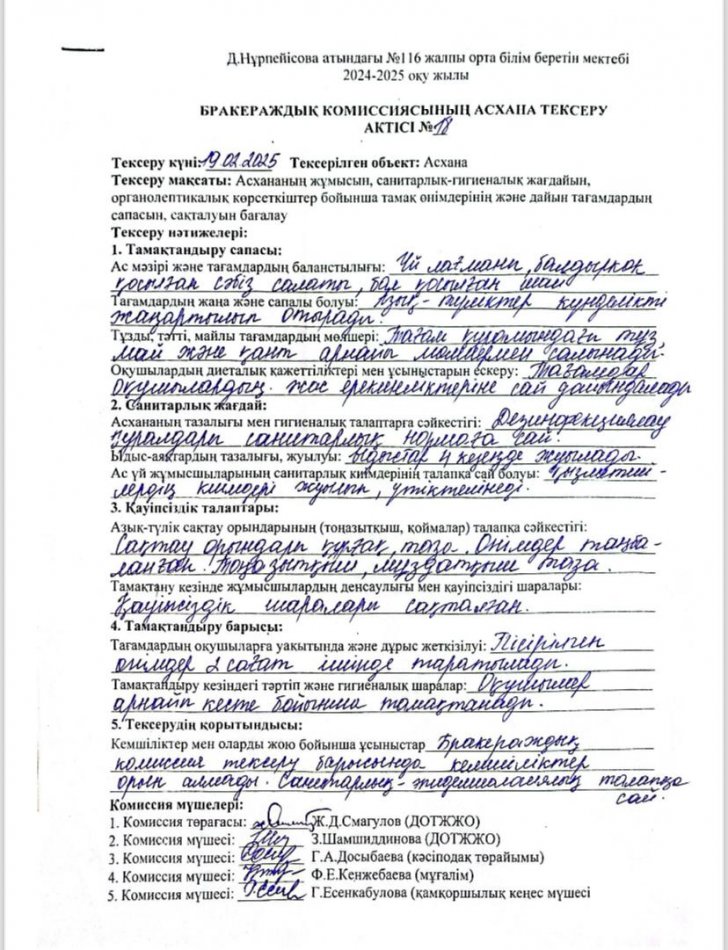 Д.Нұрпейісова атындағы №116 жалпы орта білім беретін мектебі
2024-2025 оқу жылы
БРАКЕРАЖДЫҚ КОМИССИЯСЫНЫҢ АСХАНА ТЕКСЕРУ
АКТІСІ №18
Тексеру күні: 19.02.2025 Тексерілген объект: Асхана
Тексеру мақсаты: Асхананың жұмысын, санитарлық-гигиеналық жағдайын,
органолептикалық көрсеткіштер бойынша тамақ өнімдерінің және дайын тағамдардың
сапасын, сақталуын бағалау
Тексеру нәтижелері:
1. Тамақтандыру сапасы:
Ас мәзірі және тағамдардың баланстылығы: Үй лағманы, балдыркөк
қосылған сәбіз салаты, бал қосылған шай
Тағамдардың жаңа және сапалы болуы: Азық-түліктер күнделікті
жаңартылып отырады.
Тұзды, тәтті, майлы тағамдардың мөлшері: Тағам құрамындағы тұз,
май және қант арнайы мөлшермен салынады.
Оқушылардың диеталық қажеттіліктері мен ұсыныстарын ескеру: Тағамдар
Оқушылардың жас ерекшеліктеріне сай дайындалады
2. Санитарлық жағдай:
Асхананың тазалығы мен гигиеналық талаптарға сәйкестігі: Дезинфекциялау
құралдары санитарлық нормаға сай.
Ыдыс-аяқтардың тазалығы, жуылуы: ыдыстар 4 кезеңде жуылады.
Ас үй жұмысшыларының санитарлық киімдерінің талапқа сай болуы: Қызметші-
лердің киімдері жуылып, үтіктелінеді.
3. Қауіпсіздік талаптары:
Азық-түлік сақтау орындарының (тоңазытқыш, қоймалар) талапқа сәйкестігі:
Сақтау орындары құрғақ, таза. Өнімдер таңба-
ланған. Тоңазытқыш, мұздатқыш таза.
Тамақтану кезінде жұмысшылардың денсаулығы мен қауіпсіздігі шаралары:
Қауіпсіздік шаралары сақталған.
4. Тамақтандыру барысы:
Тағамдардың оқушыларға уақытында және дұрыс жеткізілуі: Пісірілген
өнімдер 2 сағат ішінде таратылады.
Тамақтандыру кезіндегі тәртіп және гигиеналық шаралар: Оқушылар
арнайы кесте бойынша тамақтанады.
5. Тексерудің қорытындысы:
Кемшіліктер мен оларды жою бойынша ұсыныстар Бракераждық
комиссия тексеру барысында кемшіліктер
орын алмады. Санитарлық-эпидемиологиялық талапқа
сай.
Комиссия мүшелері:
1. Комиссия төрағасы: Ж.Д.Смагулов (ДОТЖЖО)
2. Комиссия мүшесі: З.Шамшиддинова (ДОТЖЖО)
3. Комиссия мүшесі: Г.А.Досыбаева (кәсіподақ төрайымы)
4. Комиссия мүшесі: Ф.Е.Кенжебаева (мұғалім)
5. Комиссия мүшесі: Г.Есенкабулова (қамқоршылық кеңес мүшесі